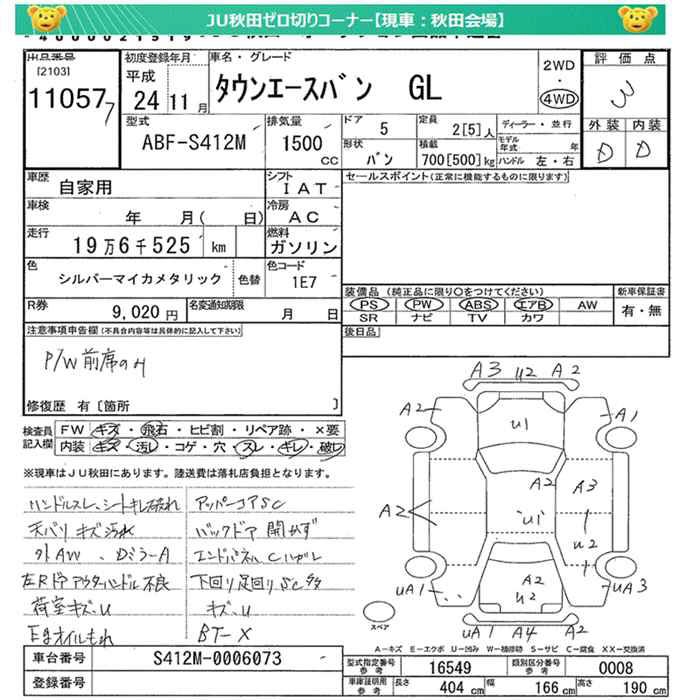 JU秋田ゼロ切りコーナー【現車：秋田会場】
出品番号
[2103]
11057 7
初度登録年月
平成
24 11月
車名・グレード
タウンエースバン GL
2WD
・
4WD
評価点
3
外装 内装
D D
型式
ABF-S412M
排気量
1500
CC
ドア 5
定員 2[5]人
ディーラー・並行
形状 バン
積載 700[500]kg
モデル年式 年
ハンドル 左・右
車歴 自家用
シフト IAT
セールスポイント(正常に機能するものに限ります)
車検 年 月( 日)
冷房 AC
走行 19万6千525 km
燃料 ガソリン
色 シルバーマイカメタリック 色替
色コード 1E7
装備品(純正品に限り○をつけてください)
新車保証書
PS PW ABS エアB AW
有・無
SR ナビ TV カワ
R券 9,020円
名変通知期限 月 日
後日品
注意事項申告欄(不具合内容等は具体的に記入して下さい)
P/W前席のみ
修復歴 有[箇所 ]
検査員記入欄
FW キズ・飛石・ヒビ割・リペア跡・×要
内装 キズ・汚レ・コゲ・穴・スレ・キレ・破レ
※現車はJU秋田にあります。陸送費は落札店負担となります。
ハンドルスレ、シートキレ破れ
天バリ キズ汚れ
外AW、DミラーA
左Rドアアウタハンドル不良
荷室キズ、U
E廻オイルもれ
アッパーコアSC
バックドア 開かず
エンドパネルCハガレ
下回り足回りSC多
キズ、U
BT-X
A3 U2 A2
A2 A1
U1
A2 A3
A2 U1
U2
UA1 A2 UA3
U2
UA1 A4 UA2
スペア
A－キズ E－エクボ U－凹み W－補修跡 S－サビ C－腐食 XX－交換済
車台番号 S412M-0006073
登録番号
型式指定番号 参考 16549
類別区分番号 参考 0008
車庫証明用 参考 長さ 404 cm 幅 166 cm 高さ 190 cm